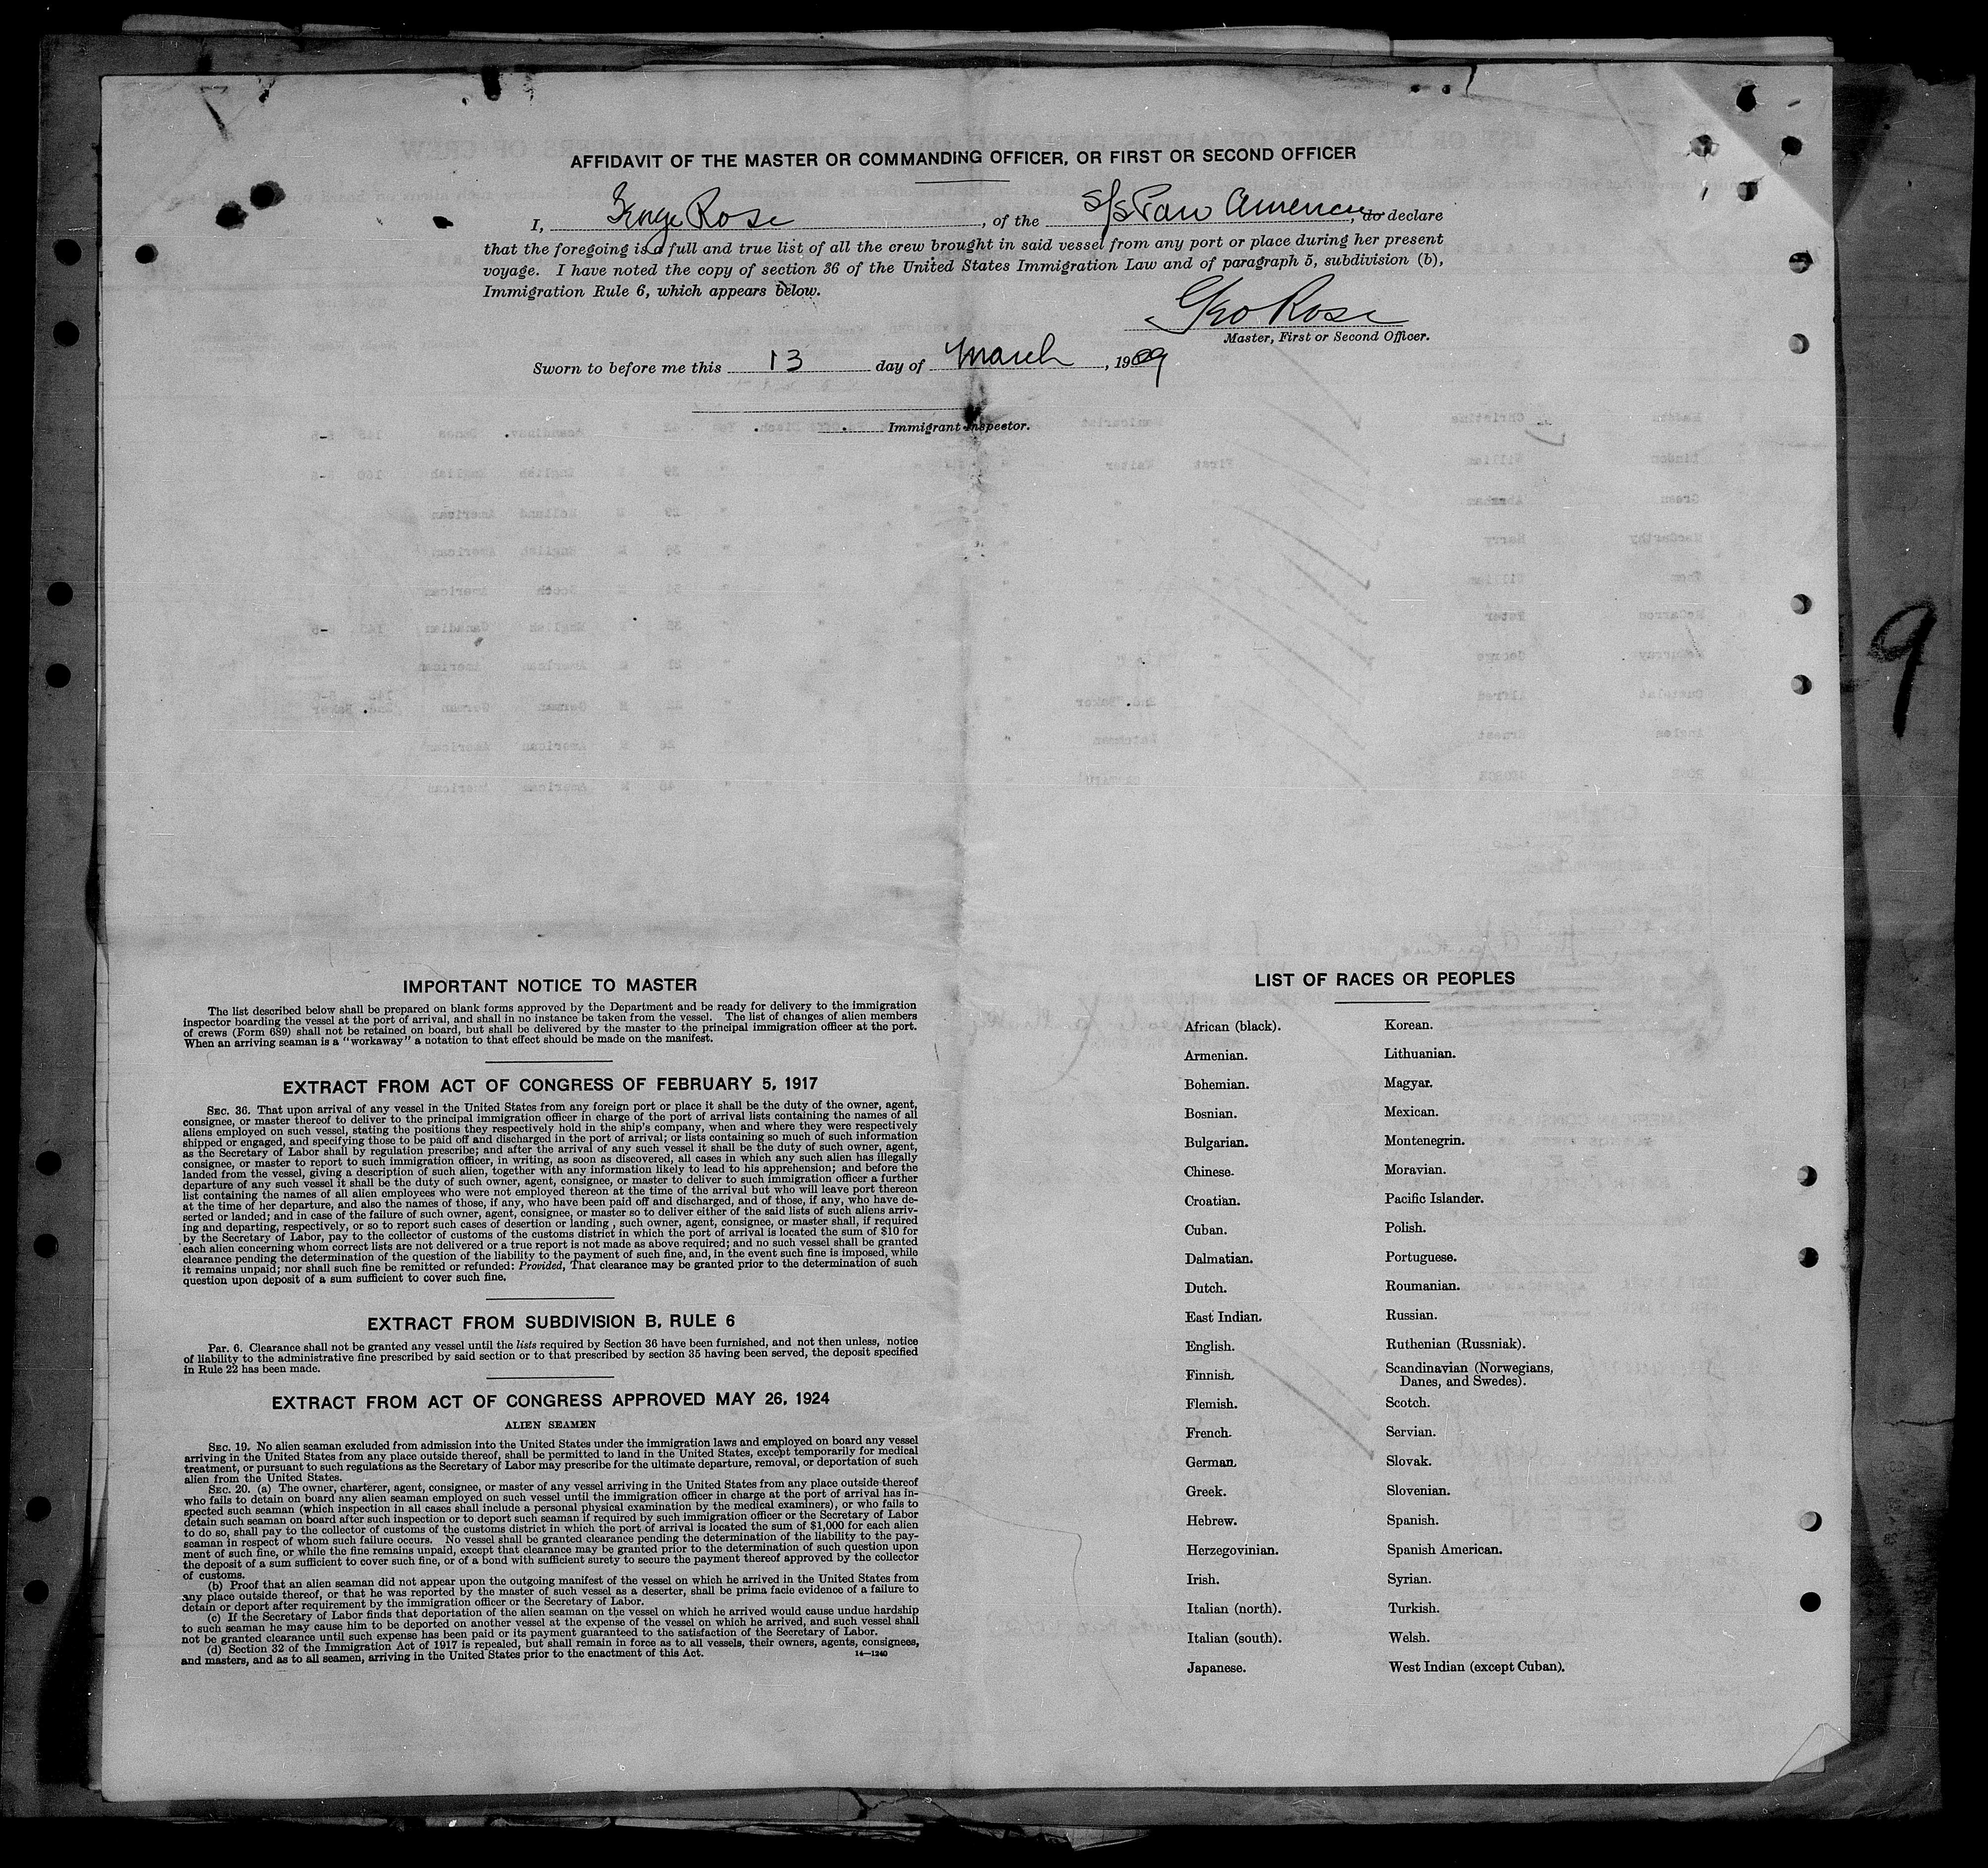 AFFIDAVIT OF THE MASTER OR COMMANDING OFFICER, OR FIRST OR SECOND OFFICER
I, George Rose, of the S/S Pan America, do declare
that the foregoing is a full and true list of all the crew brought in said vessel from any port or place during her present
voyage. I have noted the copy of section 36 of the United States Immigration Law and of paragraph 5, subdivision (b),
Immigration Rule 6, which appears below.
Geo Rose
Master, First or Second Officer.
Sworn to before me this 13 day of March, 19
Immigrant Inspector.
9
IMPORTANT NOTICE TO MASTER
The list described below shall be prepared on blank forms approved by the Department and be ready for delivery to the immigration
inspector boarding the vessel at the port of arrival, and shall in no instance be taken from the vessel. The list of changes of alien members
of crews (Form 689) shall not be retained on board, but shall be delivered by the master to the principal immigration officer at the port.
When an arriving seaman is a "workaway" a notation to that effect should be made on the manifest.
EXTRACT FROM ACT OF CONGRESS OF FEBRUARY 5, 1917
SEC. 36. That upon arrival of any vessel in the United States from any foreign port or place it shall be the duty of the owner, agent,
consignee, or master thereof to deliver to the principal immigration officer in charge of the port of arrival lists containing the names of all
aliens employed on such vessel, stating the positions they respectively hold in the ship's company, when and where they were respectively
shipped or engaged, and specifying those to be paid off and discharged in the port of arrival; or lists containing so much of such information
as the Secretary of Labor shall by regulation prescribe; and after the arrival of any such vessel it shall be the duty of such owner, agent,
consignee, or master to report to such immigration officer, in writing, as soon as discovered, all cases in which any such alien has illegally
landed from the vessel, giving a description of such alien, together with any information likely to lead to his apprehension; and before the
departure of any such vessel it shall be the duty of such owner, agent, consignee, or master to deliver to such immigration officer a further
list containing the names of all alien employees who were not employed thereon at the time of the arrival but who will leave port thereon
at the time of her departure, and also the names of those, if any, who have been paid off and discharged, and of those, if any, who have de-
serted or landed; and in case of the failure of such owner, agent, consignee, or master so to deliver either of the said lists of such aliens arriv-
ing and departing, respectively, or so to report such cases of desertion or landing, such owner, agent, consignee, or master shall, if required
by the Secretary of Labor, pay to the collector of customs of the customs district in which the port of arrival is located the sum of $10 for
each alien concerning whom correct lists are not delivered or a true report is not made as above required; and no such vessel shall be granted
clearance pending the determination of the question of the liability to the payment of such fine, and, in the event such fine is imposed, while
it remains unpaid; nor shall such fine be remitted or refunded: Provided, That clearance may be granted prior to the determination of such
question upon deposit of a sum sufficient to cover such fine.
EXTRACT FROM SUBDIVISION B, RULE 6
Par. 6. Clearance shall not be granted any vessel until the lists required by Section 36 have been furnished, and not then unless, notice
of liability to the administrative fine prescribed by said section or to that prescribed by section 35 having been served, the deposit specified
in Rule 22 has been made.
EXTRACT FROM ACT OF CONGRESS APPROVED MAY 26, 1924
ALIEN SEAMEN
SEC. 19. No alien seaman excluded from admission into the United States under the immigration laws and employed on board any vessel
arriving in the United States from any place outside thereof, shall be permitted to land in the United States, except temporarily for medical
treatment, or pursuant to such regulations as the Secretary of Labor may prescribe for the ultimate departure, removal, or deportation of such
alien from the United States.
SEC. 20. (a) The owner, charterer, agent, consignee, or master of any vessel arriving in the United States from any place outside thereof
who fails to detain on board any alien seaman employed on such vessel until the immigration officer in charge at the port of arrival has in-
spected such seaman (which inspection in all cases shall include a personal physical examination by the medical examiners), or who fails to
detain such seaman on board after such inspection or to deport such seaman if required by such immigration officer or the Secretary of Labor
to do so, shall pay to the collector of customs of the customs district in which the port of arrival is located the sum of $1,000 for each alien
seaman in respect of whom such failure occurs. No vessel shall be granted clearance pending the determination of the liability to the pay-
ment of such fine, or while the fine remains unpaid, except that clearance may be granted prior to the determination of such question upon
the deposit of a sum sufficient to cover such fine, or of a bond with sufficient surety to secure the payment thereof approved by the collector
of customs.
(b) Proof that an alien seaman did not appear upon the outgoing manifest of the vessel on which he arrived in the United States from
any place outside thereof, or that he was reported by the master of such vessel as a deserter, shall be prima facie evidence of a failure to
detain or deport after requirement by the immigration officer or the Secretary of Labor.
(c) If the Secretary of Labor finds that deportation of the alien seaman on the vessel on which he arrived would cause undue hardship
to such seaman he may cause him to be deported on another vessel at the expense of the vessel on which he arrived, and such vessel shall
not be granted clearance until such expense has been paid or its payment guaranteed to the satisfaction of the Secretary of Labor.
(d) Section 32 of the Immigration Act of 1917 is repealed, but shall remain in force as to all vessels, their owners, agents, consignees,
and masters, and as to all seamen, arriving in the United States prior to the enactment of this Act.
14—1240
LIST OF RACES OR PEOPLES
African (black).
Armenian.
Bohemian.
Bosnian.
Bulgarian.
Chinese.
Croatian.
Cuban.
Dalmatian.
Dutch.
East Indian.
English.
Finnish.
Flemish.
French.
German.
Greek.
Hebrew.
Herzegovinian.
Irish.
Italian (north).
Italian (south).
Japanese.
Korean.
Lithuanian.
Magyar.
Mexican.
Montenegrin.
Moravian.
Pacific Islander.
Polish.
Portuguese.
Roumanian.
Russian.
Ruthenian (Russniak).
Scandinavian (Norwegians,
Danes, and Swedes).
Scotch.
Servian.
Slovak.
Slovenian.
Spanish.
Spanish American.
Syrian.
Turkish.
Welsh.
West Indian (except Cuban).